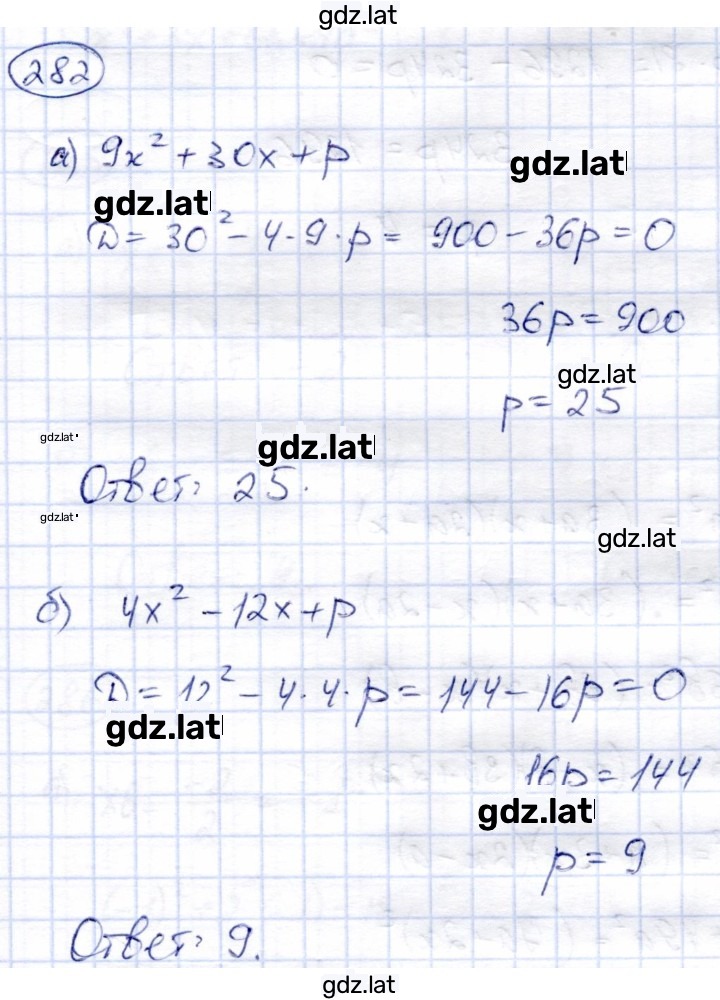 gdz.lat
282
а) 9x² + 30x + p
gdz.lat
gdz.lat
D = 30² - 4·9·p = 900 - 36p = 0
36p = 900
gdz.lat
p = 25
gdz.lat
gdz.lat
Ответ: 25.
gdz.lat
gdz.lat
б) 4x² - 12x + p
D = 12² - 4·4·p = 144 - 16p = 0
gdz.lat
16p = 144
gdz.lat
p = 9
Ответ: 9.
gdz.lat